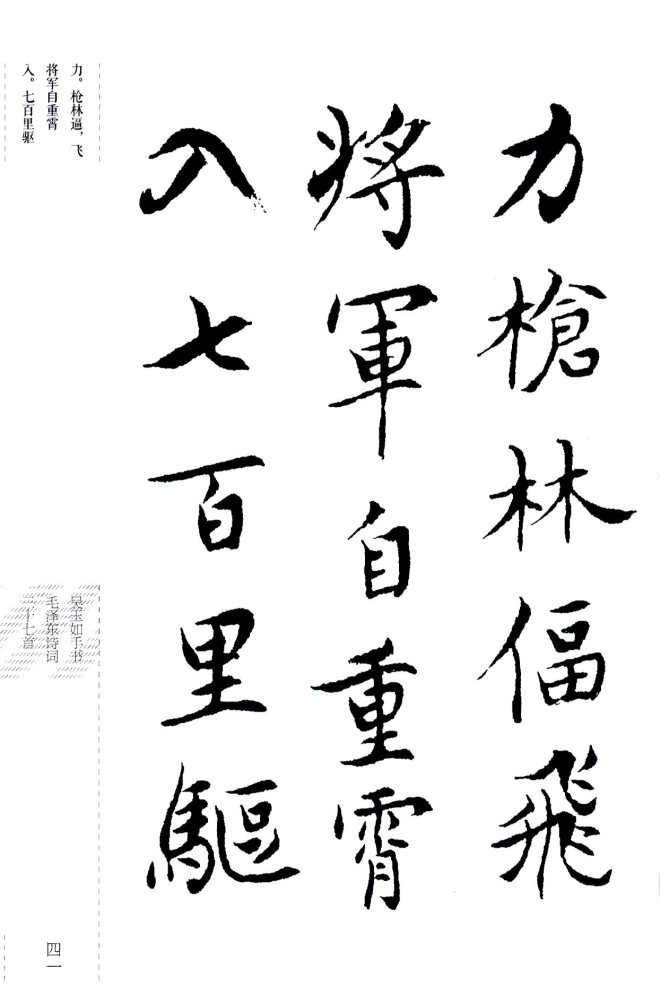 力槍林偪飛
將軍自重霄
入七百里驅
力。枪林逼，飞
将军自重霄
入。七百里驱
吴玉如手书
毛泽东诗词
三十七首
四一